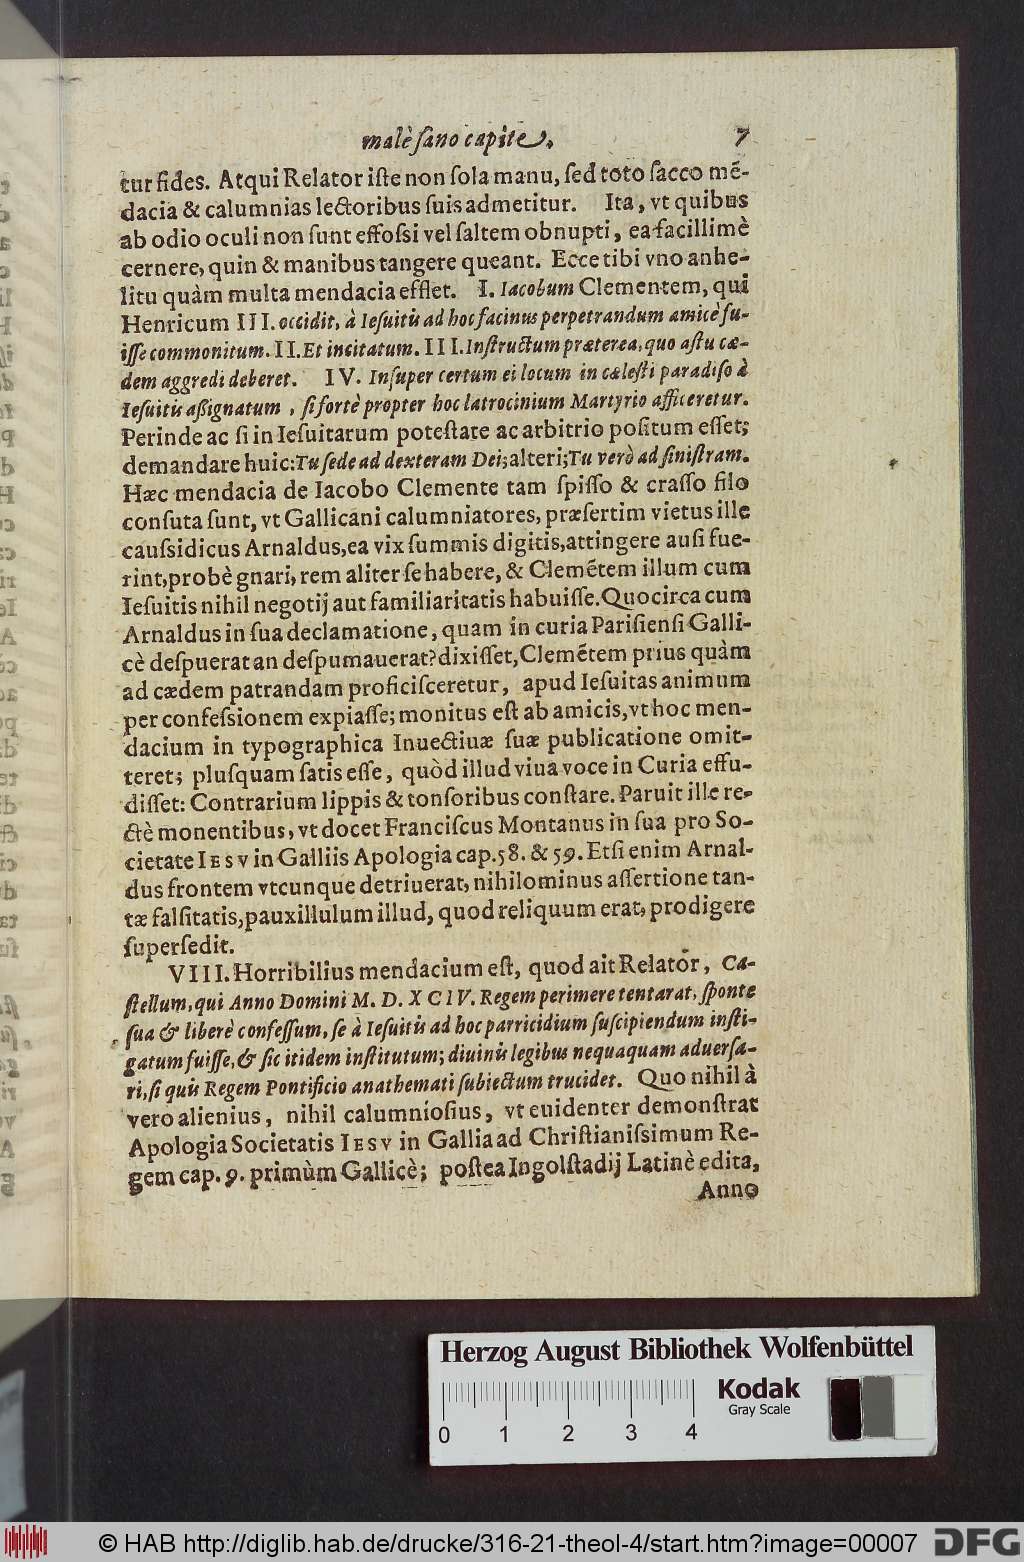 malè ſano capite. 7
tur fides. Atqui Relator iſte non ſola manu, ſed toto ſacco mẽ-
dacia & calumnias lectoribus ſuis admetitur. Ita, vt quibus
ab odio oculi non ſunt effoſsi vel ſaltem obnupti, ea facillimè
cernere, quin & manibus tangere queant. Ecce tibi vno anhe-
litu quàm multa mendacia efflet. I. Iacobum Clementem, qui
Henricum III. occidit, à Ieſuitis ad hoc facinus perpetrandum amicè fu-
iſſe commonitum. II. Et incitatum. III. Inſtructum præterea, quo aſtu cæ-
dem aggredi deberet. IV. Inſuper certum ei locum in cæleſti paradiſo à
Ieſuitis aßignatum, ſi fortè propter hoc latrocinium Martyrio afficeretur.
Perinde ac ſi in Ieſuitarum poteſtate ac arbitrio poſitum eſſet;
demandare huic: Tu ſede ad dexteram Dei; alteri; Tu verò ad ſiniſtram.
Hæc mendacia de Iacobo Clemente tam ſpiſſo & craſſo filo
conſuta ſunt, vt Gallicani calumniatores, præſertim vietus ille
cauſsidicus Arnaldus, ea vix ſummis digitis, attingere auſi fue-
rint, probè gnari, rem aliter ſe habere, & Clemẽtem illum cum
Ieſuitis nihil negotij aut familiaritatis habuiſſe. Quocirca cum
Arnaldus in ſua declamatione, quam in curia Pariſienſi Galli-
cè deſpuerat an deſpumauerat? dixiſſet, Clemẽtem prius quàm
ad cædem patrandam proficiſceretur, apud Ieſuitas animum
per confeſsionem expiaſſe; monitus eſt ab amicis, vt hoc men-
dacium in typographica Inuectiuæ ſuæ publicatione omit-
teret; pluſquam ſatis eſſe, quòd illud viua voce in Curia effu-
diſſet: Contrarium lippis & tonſoribus conſtare. Paruit ille re-
ctè monentibus, vt docet Franciſcus Montanus in ſua pro So-
cietate IESV in Galliis Apologia cap. 58. & 59. Etſi enim Arnal-
dus frontem vtcunque detriuerat, nihilominus aſſertione tan-
tæ falſitatis, pauxillulum illud, quod reliquum erat, prodigere
ſuperſedit.
VIII. Horribilius mendacium eſt, quod ait Relator, Ca-
ſtellum, qui Anno Domini M. D. XCIV. Regem perimere tentarat, ſponte
ſua & liberè confeſſum, ſe à Ieſuitis ad hoc parricidium ſuſcipiendum inſti-
gatum fuiſſe, & ſic itidem inſtitutum; diuinis legibus nequaquam aduerſa-
ri, ſi quis Regem Pontificio anathemati ſubiectum trucidet. Quo nihil à
vero alienius, nihil calumnioſius, vt euidenter demonſtrat
Apologia Societatis IESV in Gallia ad Chriſtianiſsimum Re-
gem cap. 9. primùm Gallicè; poſtea Ingolſtadij Latinè edita,
Anno
Herzog August Bibliothek Wolfenbüttel
Kodak
Gray Scale
0 1 2 3 4
© HAB http://diglib.hab.de/drucke/316-21-theol-4/start.htm?image=00007 DFG